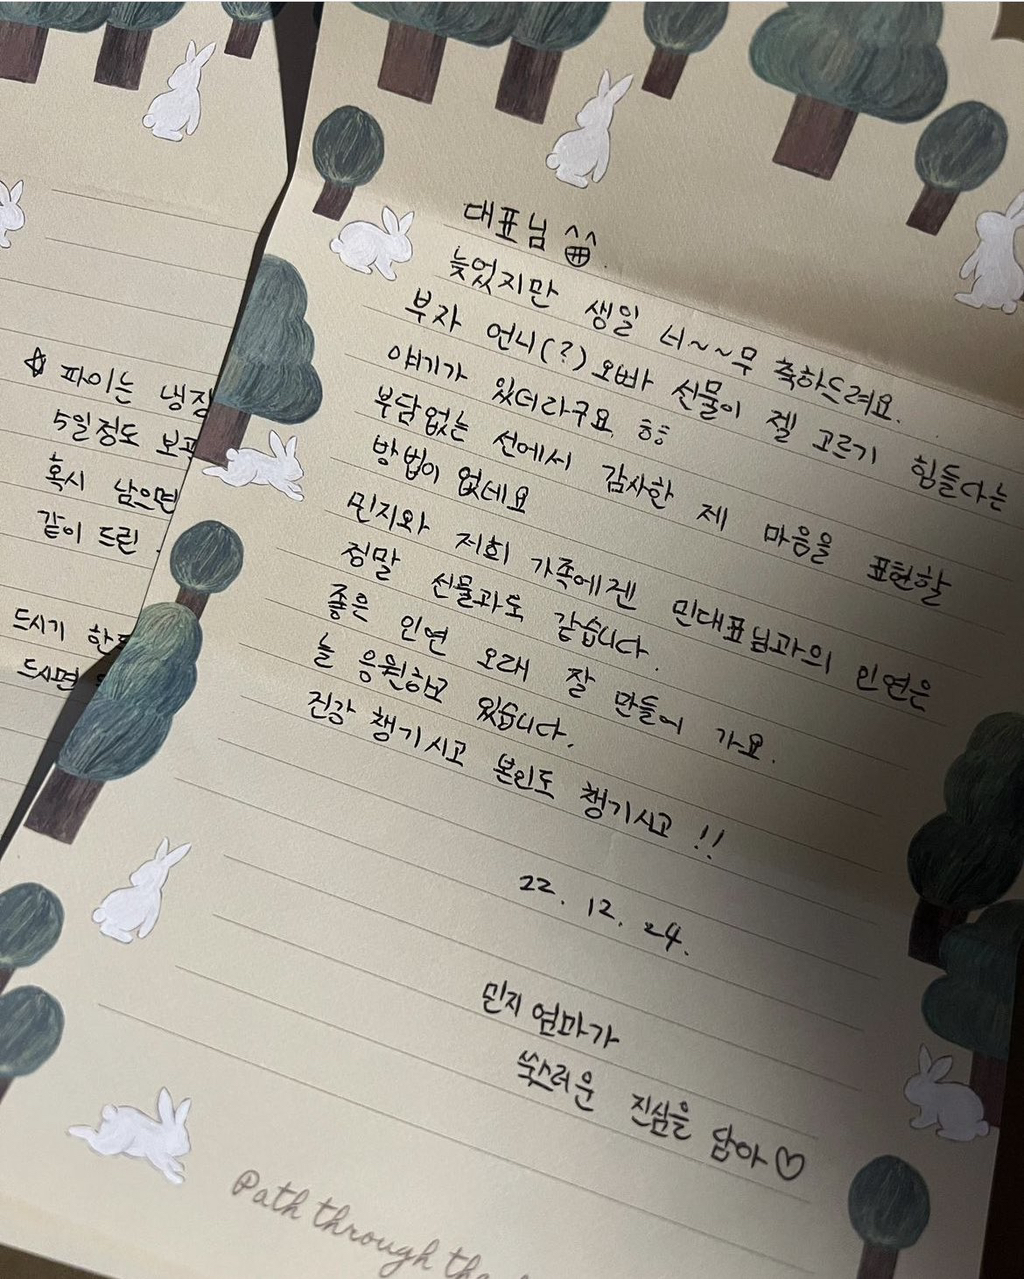 ☆ 파이는 냉장
5일정도 보관
혹시 남으면
같이 드린
드시기 한
드시면
대표님
늦었지만 생일 너~~무 축하드려요.
부자 언니(?)오빠 선물이 젤 고르기 힘들다는
얘기가 있더라구요. ㅎㅎ
부담없는 선에서 감사한 제 마음을 표현할
방법이 없네요
민지와 저희 가족에겐 민대표님과의 인연은
정말 선물과도 같습니다.
좋은 인연 오래 잘 만들어 가요.
늘 응원하고 있습니다.
건강 챙기시고 본인도 챙기시고 !!
22. 12. 24.
민지 엄마가
쑥스러운 진심을 담아♡
Path through the